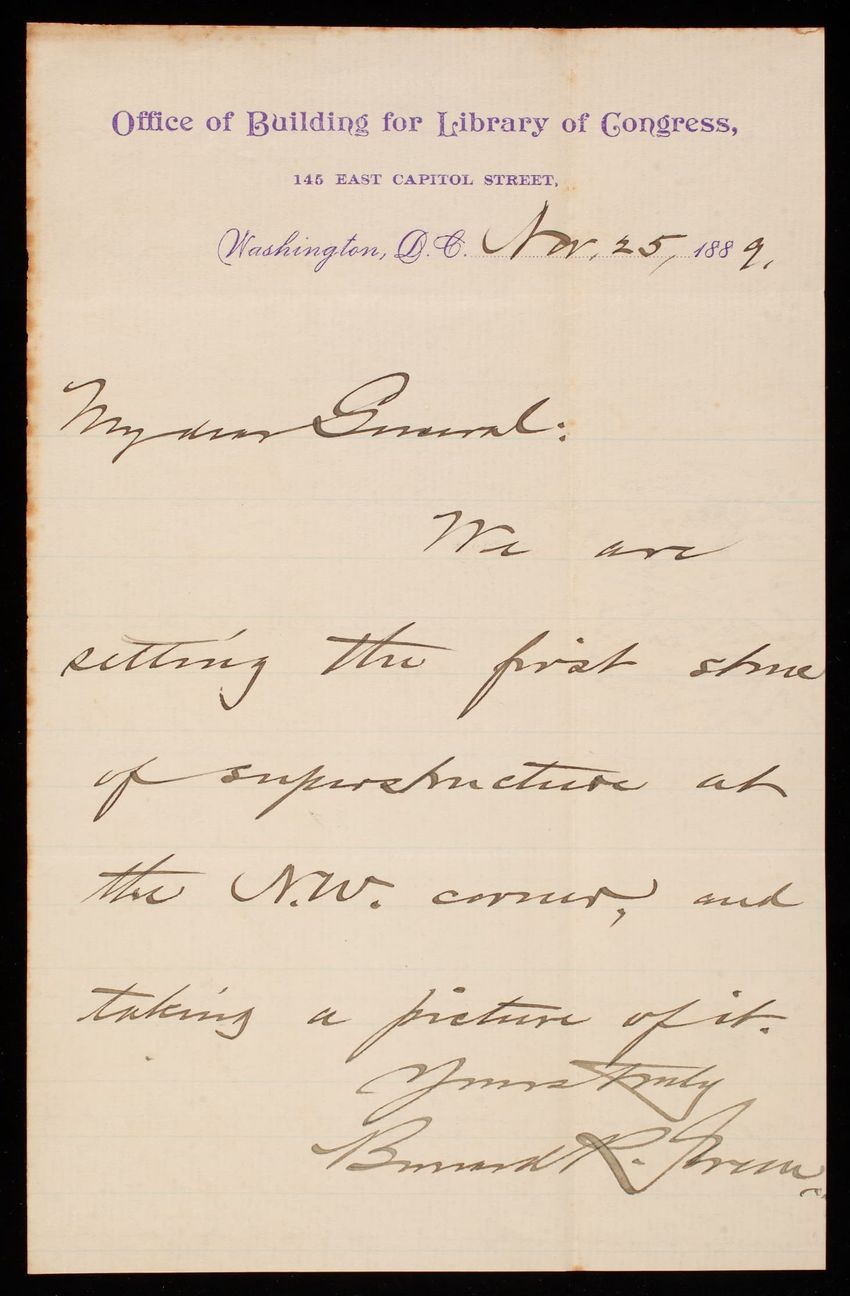 Office of Building for Library of Congress,
145 EAST CAPITOL STREET,
Washington, D.C. Nov. 25, 1889.
My dear General:
We are
setting the first stone
of superstructure at
the N.W. corner, and
taking a picture of it.
Yours truly
Bernard R. Green.